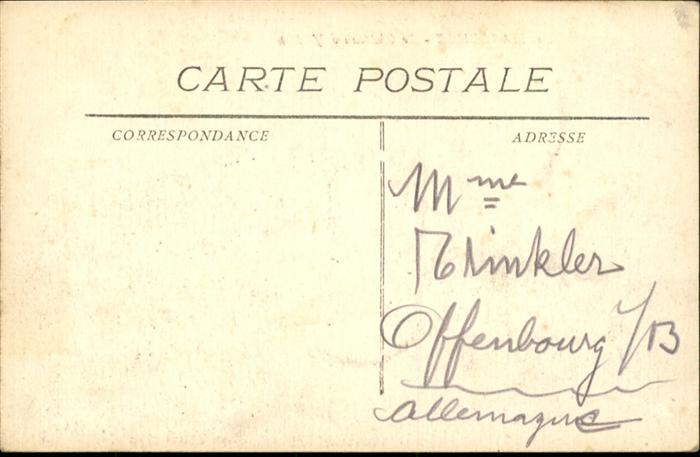 CARTE POSTALE
CORRESPONDANCE
ADRESSE
Mme
Trinkler
Offenbourg /B
Allemagne